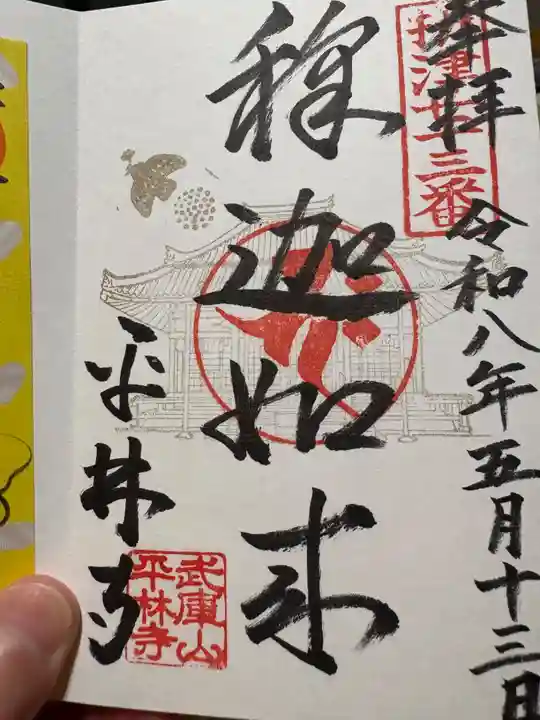 奉拝
摂津七十三番
令和八年五月十三日
釈迦如来
平林寺
武庫山
平林寺